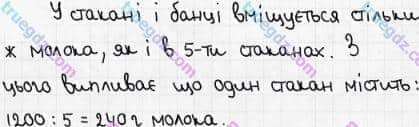 У стакані і банці вміщується стільки
ж молока, як і в 5-ти стаканах. З
цього випливає що один стакан містить:
1200 : 5 = 240 г молока.